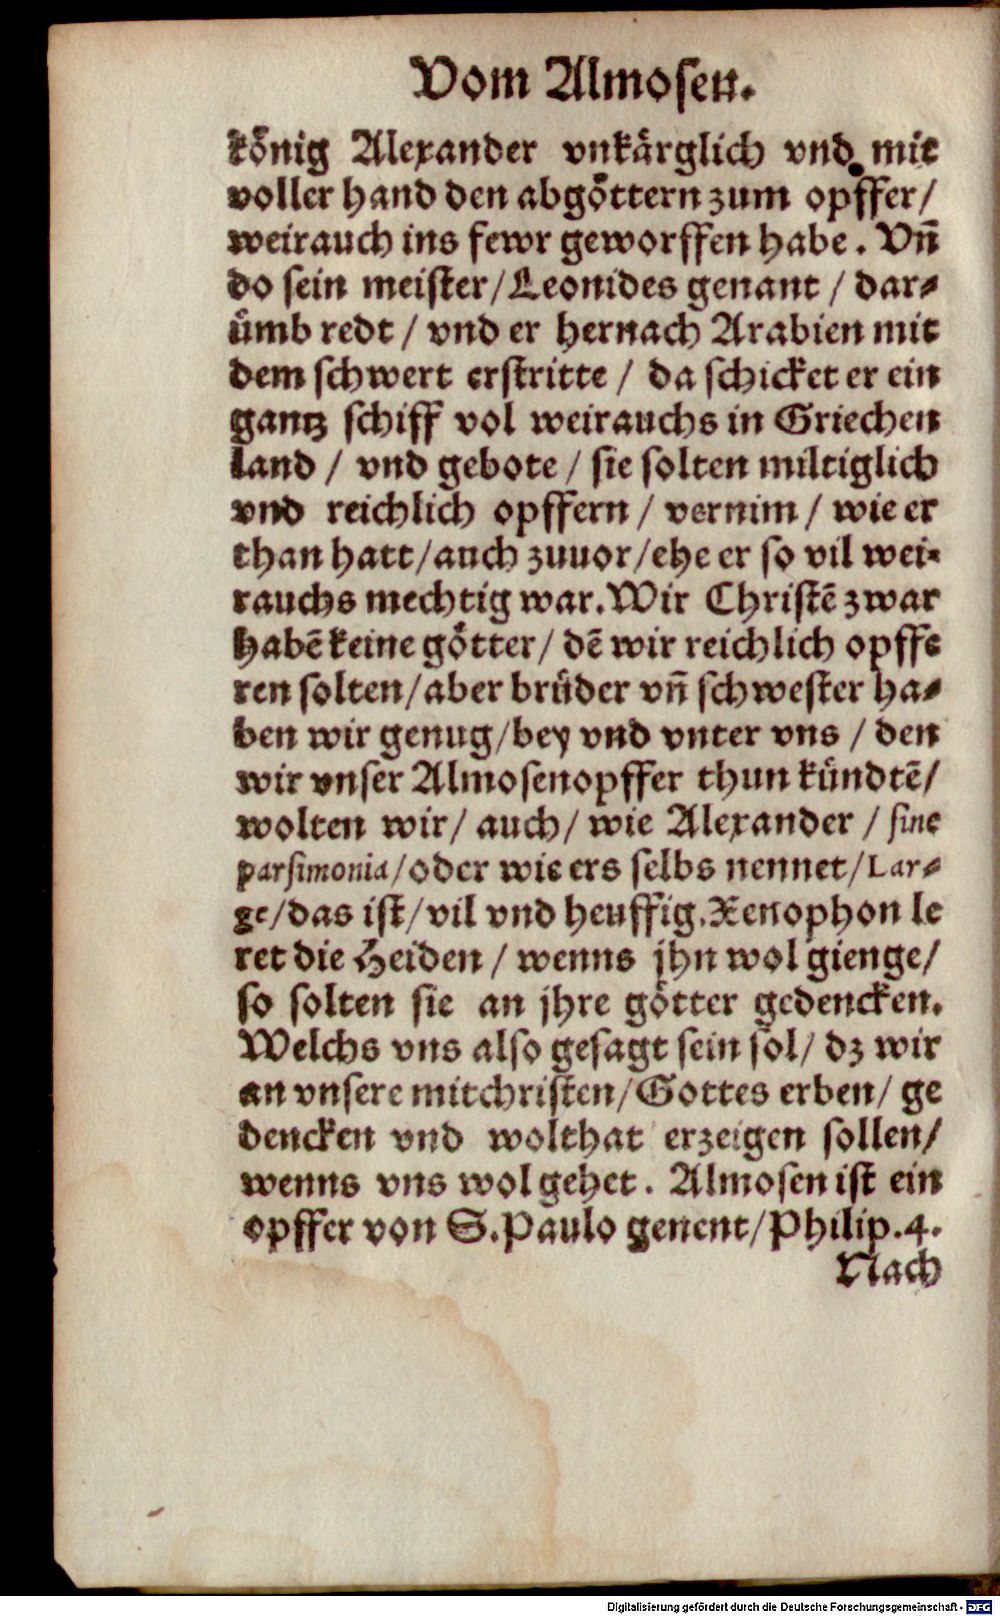 Vom Almosen.
könig Alexander vnkärglich vnd mit
voller hand den abgöttern zum opffer/
weirauch ins fewr geworffen habe. Vn̄
do sein meister/Leonides genant / dar⸗
ümb redt / vnd er hernach Arabien mit
dem schwert erstritte / da schicket er ein
gantz schiff vol weirauchs in Griechen
land / vnd gebote / sie solten miltiglich
vnd reichlich opffern / vernim / wie er
than hatt/auch zuuor/ehe er so vil wei⸗
rauchs mechtig war. Wir Christē zwar
habē keine götter/ dē wir reichlich opffe
ren solten/aber brüder vn̄ schwester ha⸗
ben wir genug/bey vnd vnter vns / den
wir vnser Almosenopffer thun kündtē/
wolten wir/ auch/ wie Alexander / sine
parsimonia/oder wie ers selbs nennet/Lar⸗
ge/das ist/vil vnd heuffig. Xenophon le
ret die Heiden / wenns jhn wol gienge/
so solten sie an jhre götter gedencken.
Welchs vns also gesagt sein sol/ dz wir
an vnsere mitchristen/Gottes erben/ ge
dencken vnd wolthat erzeigen sollen/
wenns vns wol gehet. Almosen ist ein
opffer von S. Paulo genent/Philip. 4.
Nach
Digitalisierung gefördert durch die Deutsche Forschungsgemeinschaft - DFG